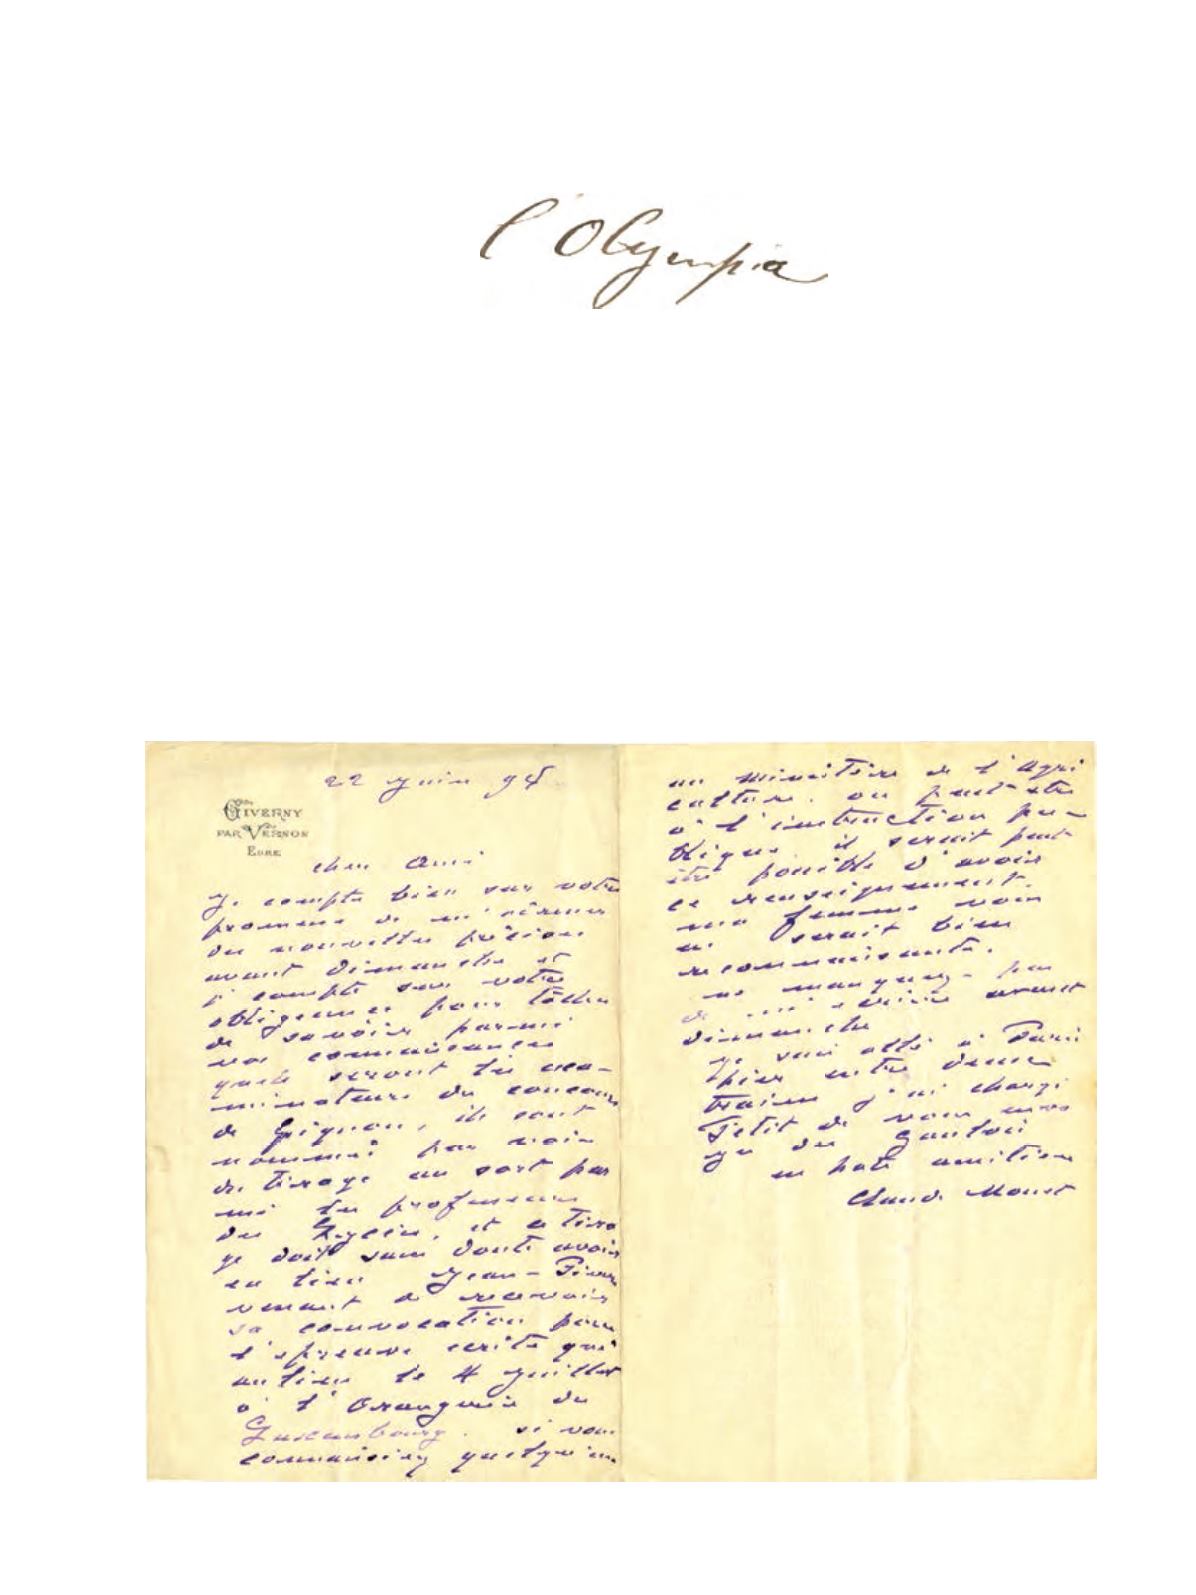 l'Olympia
22 juin 95
GIVERNY
PAR VERNON
EURE
cher Ami
Je compte bien sur votre
promesse de m'écrire
des nouvelles précises
avant dimanche et
je compte sur votre
obligeance pour tâcher
de savoir parmi
vos connaissances
quels seront les exa-
minateurs du concours
de Grignon, ils sont
nommés par voie
de tirage au sort par
mi les professeurs
des Lycées, et ce tira
ge doit sans doute avoir
eu lieu Jean-Pierre
venant de recevoir
sa convocation pour
l'épreuve écrite qui
a lieu le 4 Juillet
à l'Orangerie du
Luxembourg. si vous
connaissiez quelqu'un
au Ministère de l'Agri
culture. ou peut-être
à l'instruction pu-
blique il serait peut
être possible d'avoir
ce renseignement.
ma femme vous
en serait bien
reconnaissante.
ne manquez pas
de écrire avant
dimanche
je suis allé à Paris
hier entre deux
trains j'ai chargé
Petit de vous
des
en hâte amitiés
Claude Monet